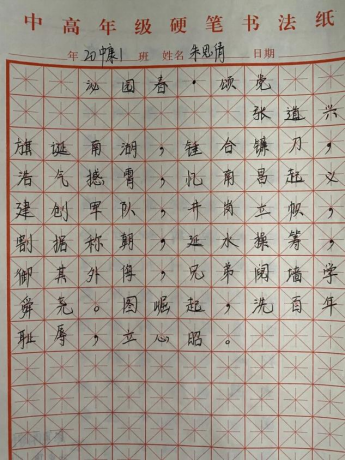 中高年级硬笔书法纸
年 20中康1 班 姓名 朱思倩 日期
沁园春·颂党
张道兴
旗诞南湖，锤合镰刀，
浩气撼霄，忆南昌起义
建创军队，井岗立帜，
割据称朝，延水操筹，
御其外侮，兄弟阋墙学
舜尧。图崛起，洗百年
耻辱，立心昭。